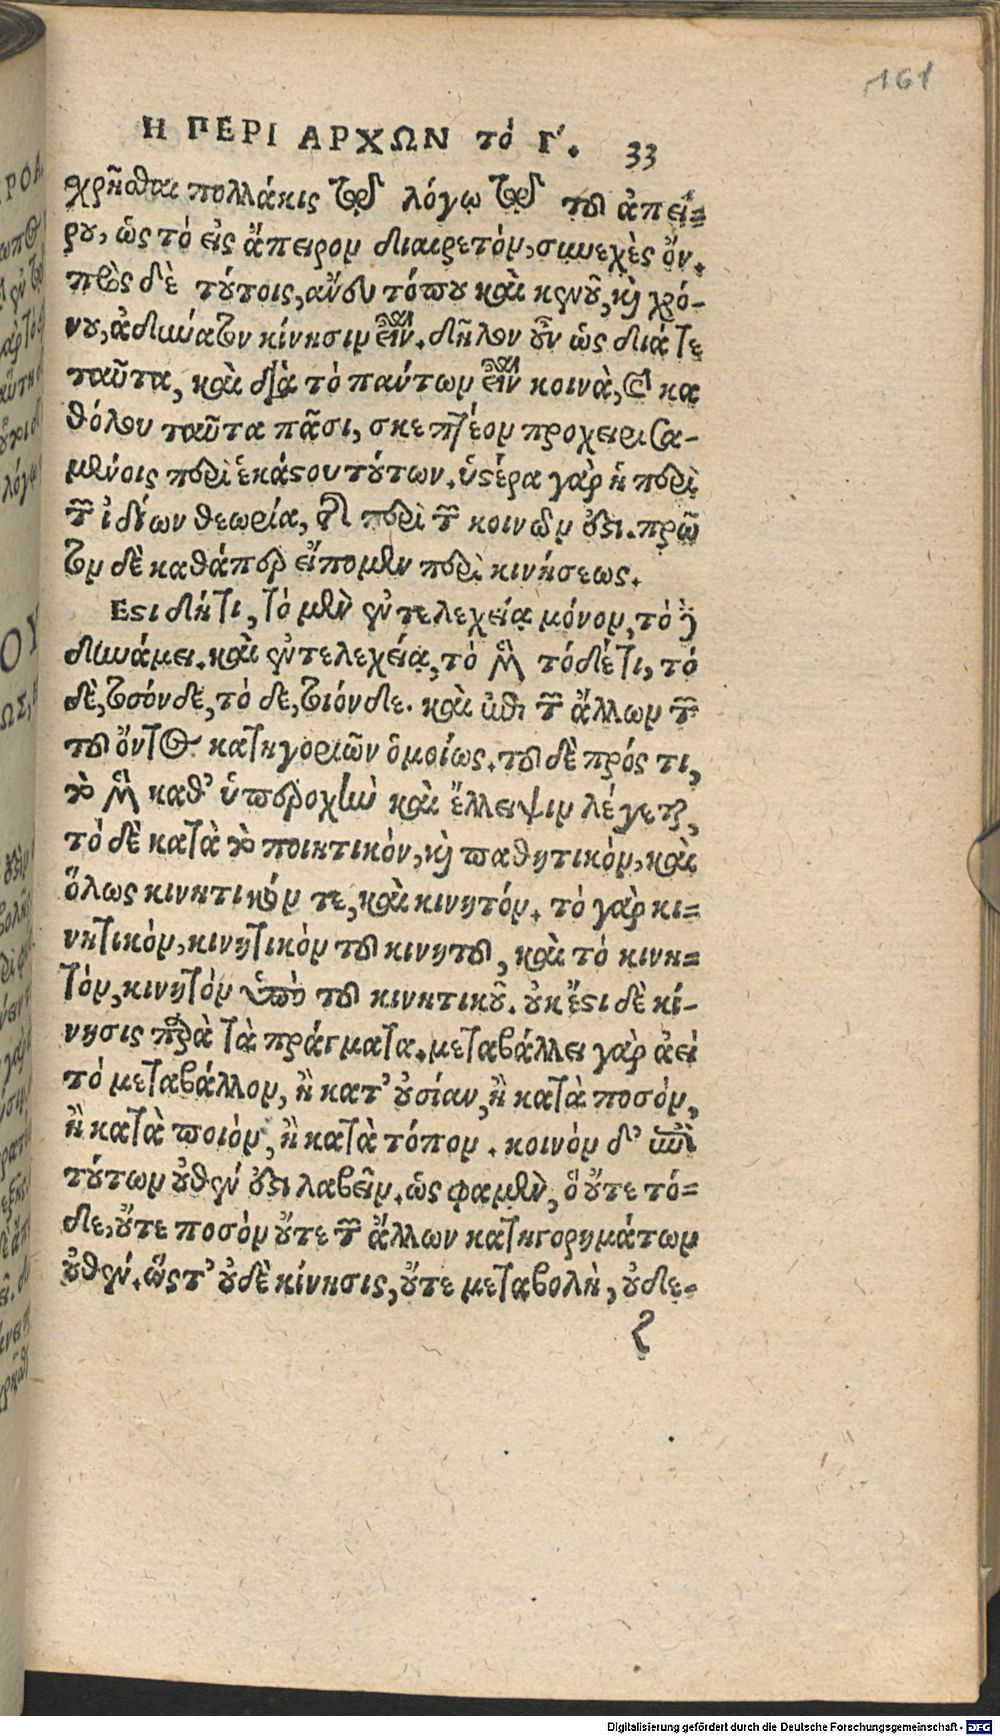 161
Η ΠΕΡΙ ΑΡΧΩΝ τὸ Γ΄. 33
χρῆσθαι πολλάκις τῷ λόγῳ τῷ τοῦ ἀπεί-
ρου, ὡς τὸ εἰς ἄπειρον διαιρετὸν, συνεχὲς ὄν.
πρὸς δὲ τούτοις, ἄνευ τόπου καὶ κενοῦ, καὶ χρό-
νου, ἀδύνατον κίνησιν εἶναι. δῆλον οὖν ὡς διά τε
ταῦτα, καὶ διὰ τὸ πάντων εἶναι κοινὰ, καὶ κα
θόλου ταῦτα πᾶσι, σκεπτέον προχειρισα-
μένοις περὶ ἑκάστου τούτων. ὑστέρα γὰρ ἡ περὶ
τῶν ἰδίων θεωρία, τῆς περὶ τῶν κοινῶν ἐστι. πρῶ
τον δὲ καθάπερ εἴπομεν περὶ κινήσεως.
Εστι δή τι, τὸ μὲν ἐντελεχείᾳ μόνον, τὸ δὲ
δυνάμει. καὶ ἐντελεχείᾳ, τὸ μὲν τόδέ τι, τὸ
δὲ, τοσόνδε, τὸ δὲ, τοιόνδε. καὶ ἐπὶ τῶν ἄλλων τῶν
τοῦ ὄντος κατηγοριῶν ὁμοίως. τοῦ δὲ πρός τι,
τὸ μὲν καθ' ὑπεροχὴν καὶ ἔλλειψιν λέγεται,
τὸ δὲ κατὰ τὸ ποιητικὸν, καὶ παθητικὸν, καὶ
ὅλως κινητικόν τε, καὶ κινητόν. τὸ γὰρ κι-
νητικὸν, κινητικὸν τοῦ κινητοῦ, καὶ τὸ κινη-
τὸν, κινητὸν ὑπὸ τοῦ κινητικοῦ. οὐκ ἔστι δὲ κί-
νησις παρὰ τὰ πράγματα. μεταβάλλει γὰρ ἀεὶ
τὸ μεταβάλλον, ἢ κατ' οὐσίαν, ἢ κατὰ ποσὸν,
ἢ κατὰ ποιὸν, ἢ κατὰ τόπον. κοινὸν δ' ἐπὶ
τούτων οὐθέν ἐστι λαβεῖν. ὡς φαμὲν, ὃ οὔτε τό-
δε, οὔτε ποσὸν οὔτε τῶν ἄλλων κατηγορημάτων
οὐθέν. ὥστ' οὐδὲ κίνησις, οὔτε μεταβολὴ, οὐδε-
ζ
Digitalisierung gefördert durch die Deutsche Forschungsgemeinschaft - DFG